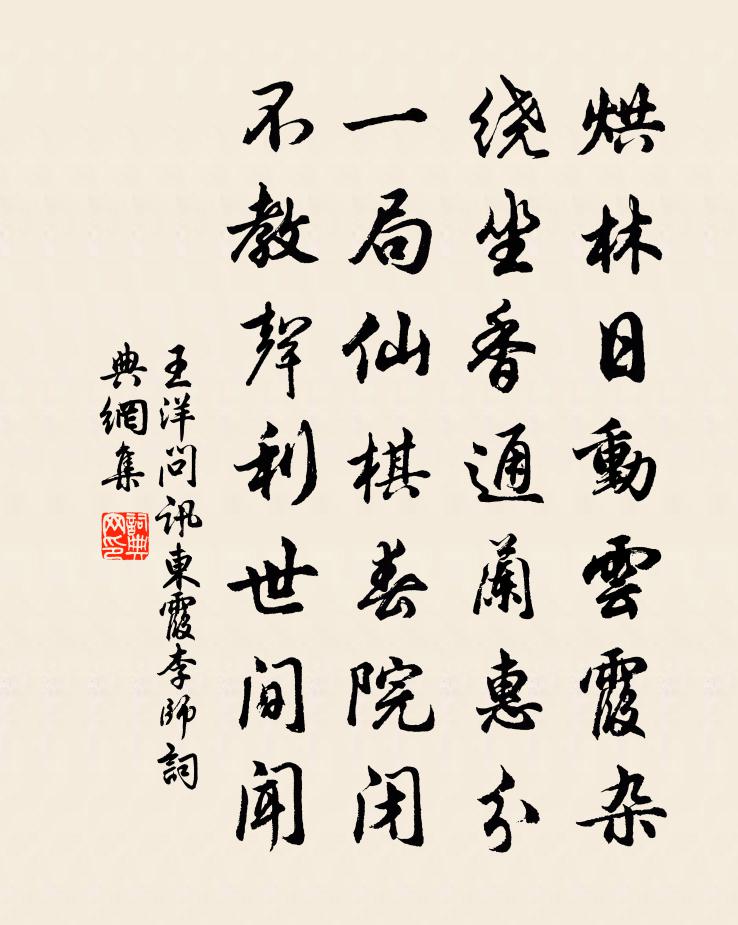 烘林日動雲霞杂
绕坐香通蘭惠分
一局仙棋春院闭
不教聲利世间闻
王洋问讯東霞李師詞
典網集
詞典
网印